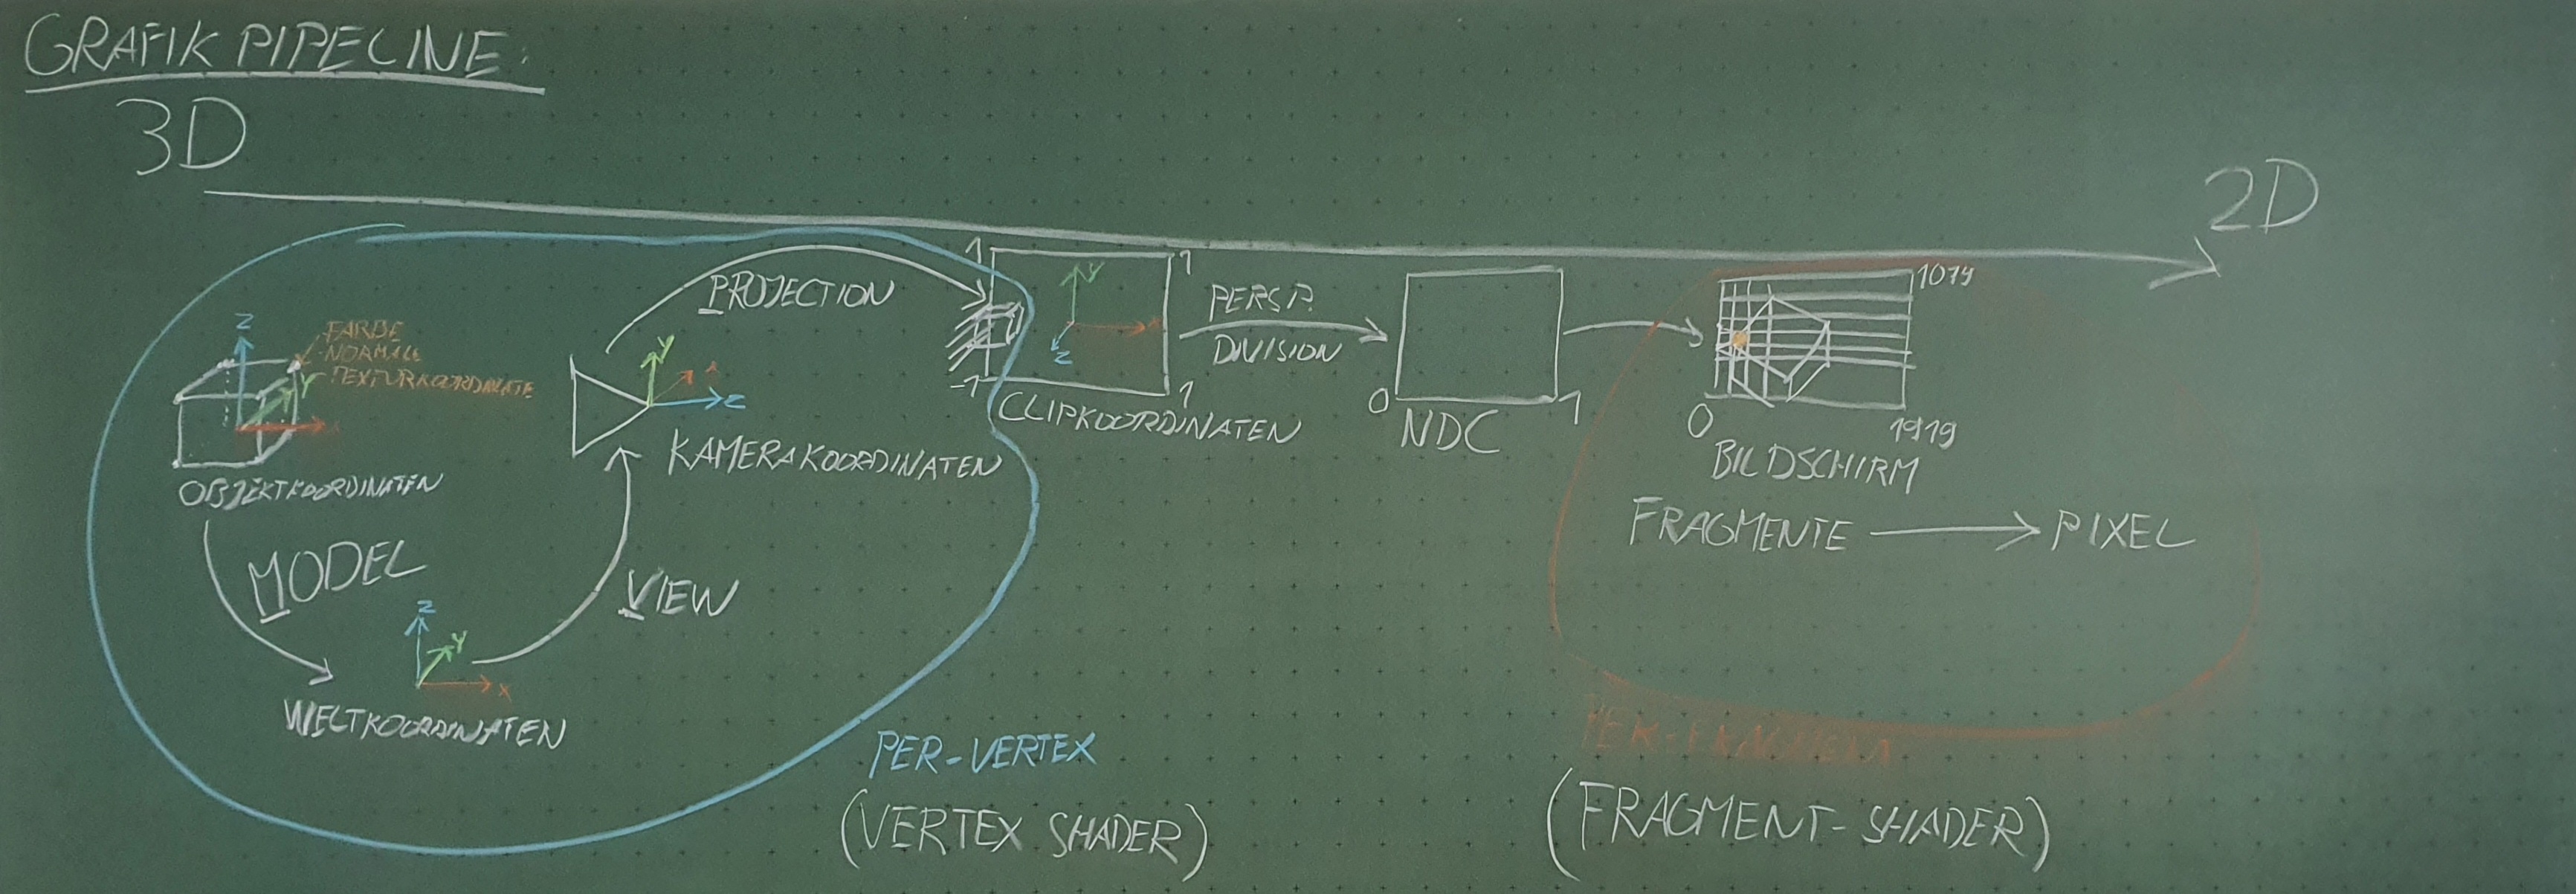 GRAFIK PIPELINE:
3D
2D
Z
FARBE
-NORMALE
-TEXTURKOORDINATE
Y
X
OBJEKTKOORDINATEN
MODEL
Z
Y
X
WELTKOORDINATEN
VIEW
Y
Z
KAMERAKOORDINATEN
PROJECTION
1
1
Y
Z
-1
1
CLIPKOORDINATEN
PERSP.
DIVISION
0
1
NDC
1079
0
1919
BILDSCHIRM
FRAGMENTE
PIXEL
PER-VERTEX
(VERTEX SHADER)
PER-FRAGMENT
(FRAGMENT-SHADER)